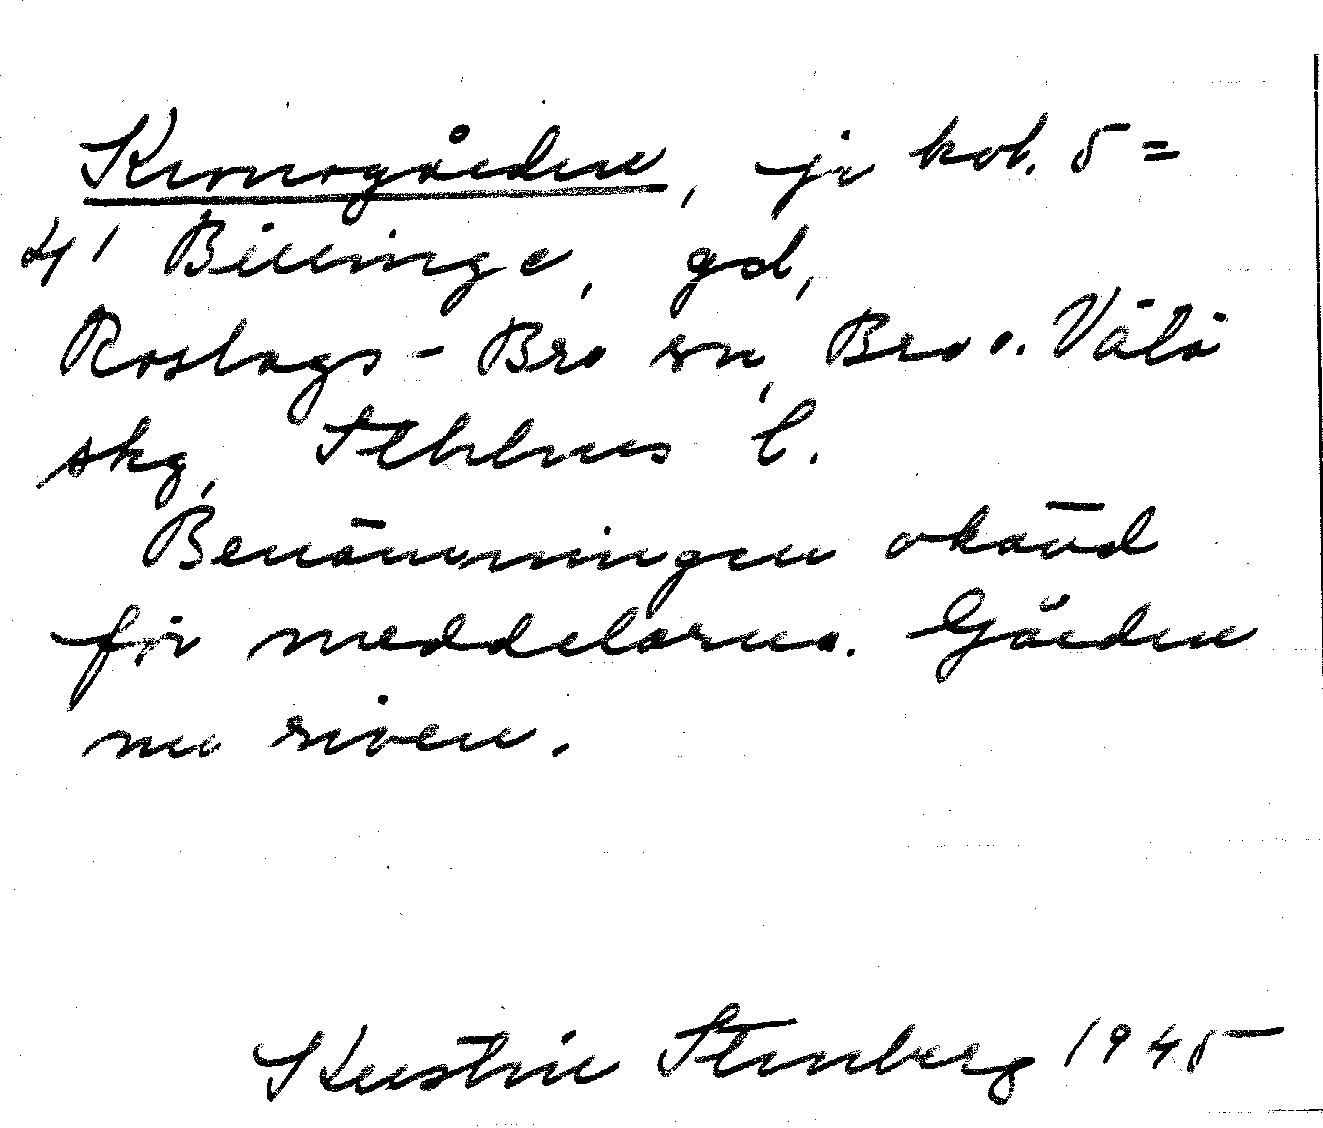 Kronogården, jr kol. 5 =
4 1 Billinge, gd,
Roslags-Bro sn, Bro o. Vätö
skg, Sthlms l.
Benämningen okänd
för meddelarna. Gården
nu riven.
Kerstin Stenberg 1945